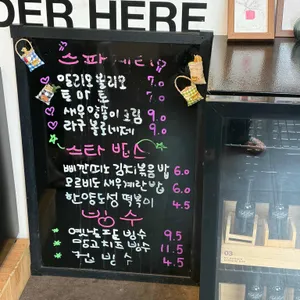 DER HERE
스파게티
알리오 올리오 7.0
토마토 7.0
새우 크림 9.0
라구 볼로네제 9.0
스타 밥스
빠삐또 김치볶음밥 6.0
오르비도 새우계란밥 6.0
한양도성 떡볶이 4.5
빙수
옛날 팥빙수 9.5
망고치즈빙수 11.5
컵빙수 4.5